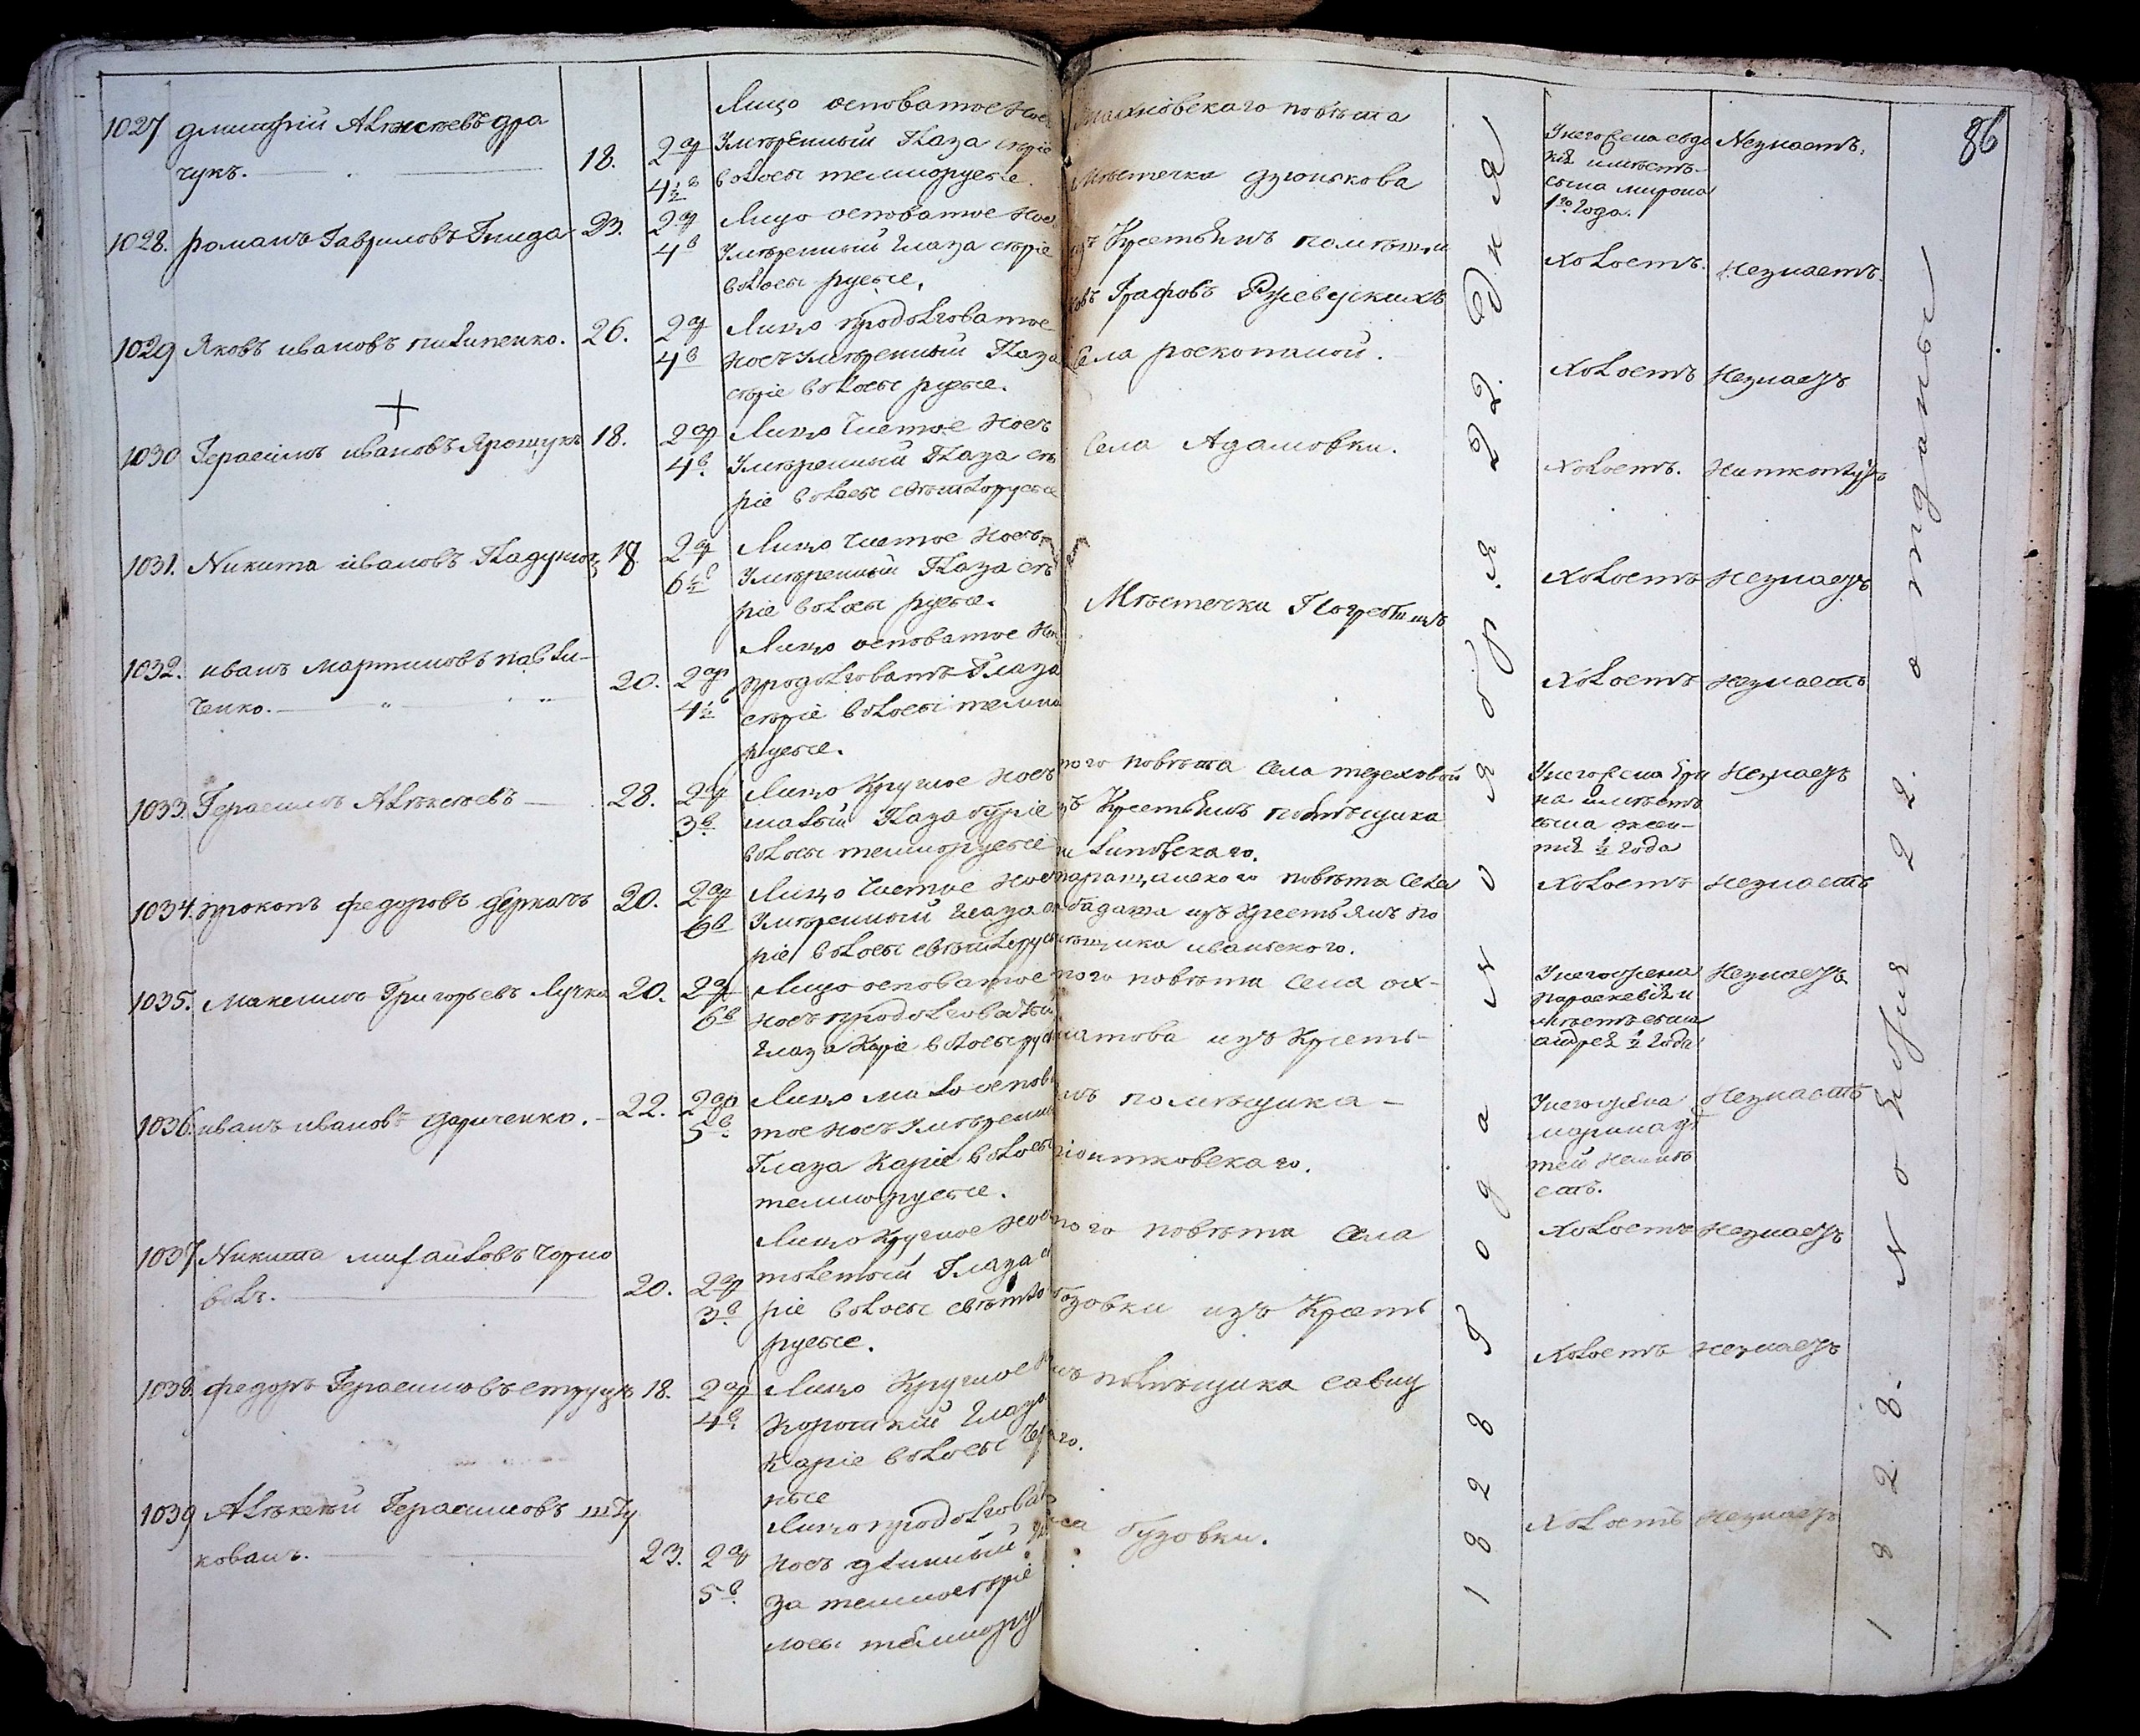 86
1027 Дмитрій Алексѣевъ Дра
чукъ.
18.
2 ар
4½ в
Лицо осповатое нос
умѣренный глаза сѣріе
волосы темнорусые.
Махновскаго повѣта
Мѣстечка Дзюнькова
имѣетъ
сына мирона
1го года.
Незнаетъ.
1028. Романъ Гавриловъ Гнида
23.
2 ар
4 в
Лицо осповатое нос
умѣренный глаза сѣріе
волосы русые.
Крестьянъ помѣщи
ковъ Графовъ Ржевускихъ
Холостъ.
Незнаетъ.
1029 Яковъ ивановъ пилипенко.
26.
2 ар
4 в
Лицо продолговатое
носъ умѣренный глаза
сѣріе волосы русые.
Села роскопаной.
Холостъ
Незнаетъ
1030 Герасимъ ивановъ Ярощукъ
18.
2 ар
4 в.
Лицо чистое носъ
умѣренный глаза сѣ
ріе волосы свѣтлорусые
Села Адамовки.
Холостъ.
1031. Никита ивановъ
18
2 ар
6½ в
Лицо чистое носъ
умѣренный глаза сѣ
ріе волосы русые.
Мѣстечка Погребищъ
Холостъ
Незнаетъ
1032. иванъ Мартиновъ павли-
ченко.
20.
2 ар
4½
Лицо осповатое но
продолговатъ глаза
сѣріе волосы темно
русые.
Холостъ
Незнаетъ
1033. Герасимъ Алексѣевъ
28.
2 ар
3 в.
Лицо круглое носъ
малый глаза буріе
волосы темнорусые
ного повѣта села терехова
Крестьянъ помѣщика
липовскаго.
на имѣетъ
сына оксен-
тія ½ года
Незнаетъ
1034. прокопъ федоровъ деркачъ
20.
2 ар
6 в
Лицо чистое нос
умѣренный глаза сѣ
ріе волосы свѣтлорусы
таращанского повѣта села
изъ крестьянъ по
мѣщика иванского.
Холостъ
Незнаетъ
1035. Максимъ Григорьевъ Лучка
20.
2 ар
6 в
Лицо осповатое
носъ продолговатый
глаза каріе волосы рус
ного повѣта села ох-
матова изъ кресть-
У него жена
параскевія и
мѣетъ сына
андрея ½ года
Незнаетъ
1036. иванъ ивановъ
22.
2 ар
5 в.
Лицо мало оспова
тое носъ умѣренн
глаза каріе волосы
темнорусые.
янъ помѣщика
У него жена
марина дѣ
тей неимѣ
етъ.
Незнаетъ
1037 Никита михайловъ чорно
волъ.
20.
2 ар
3 в.
Лицо круглое нос
толстый глаза сѣ
ріе волосы свѣтло
русые.
ного повѣта села
бузовки изъ кресть
Холостъ
Незнаетъ
1038. федоръ Герасимовъ
18.
2 ар
4 в.
Лицо круглое н
короткій глаза
каріе волосы чер
ные
янъ помѣщика савиц
каго.
Холостъ
Незнаетъ
1039 Алексѣй Герасимовъ шту
кованъ.
23.
2 ар
5 в.
Лицо продолгова
носъ длинный гла
за темносѣріе
лосы темнорус
села бузовки.
Холостъ
Незнаетъ
1828 года Ноября 22. Дня
1828. Ноября 22. отданъ